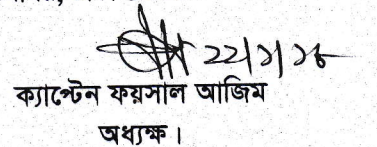 ২২/১/২৬
ক্যাপ্টেন ফয়সাল আজিম
অধ্যক্ষ।